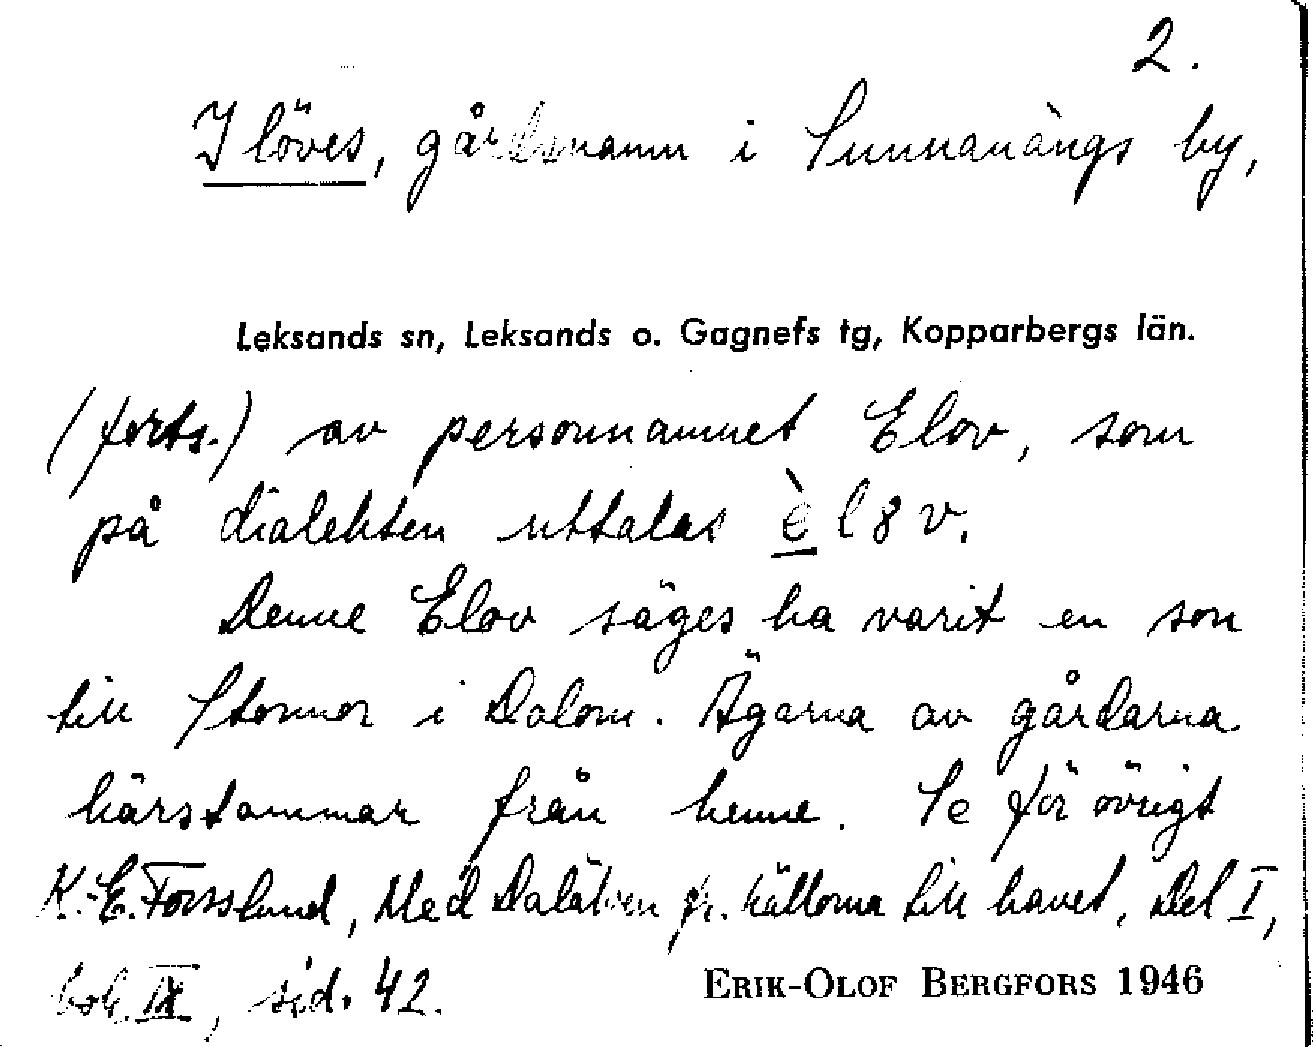 2.
Jlöves, gårdsnamn i Sunnanängs by,
Leksands sn, Leksands o. Gagnefs tg, Kopparbergs län.
(forts.) av personnamnet Elov, som
på dialekten uttalas èl8v.
Denne Elov säges ha varit en son
till Stormor i Dalom. Ägarna av gårdarna
härstammar från henne. Se för övrigt
K.-E. Forsslund, Med Dalälven fr. källorna till havet, Del I,
bok IX, sid. 42.
ERIK-OLOF BERGFORS 1946